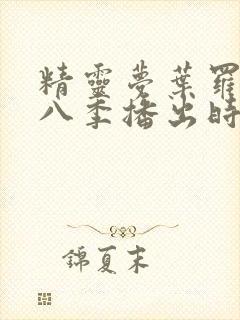 精靈夢葉羅
八季播出時
錦夏末